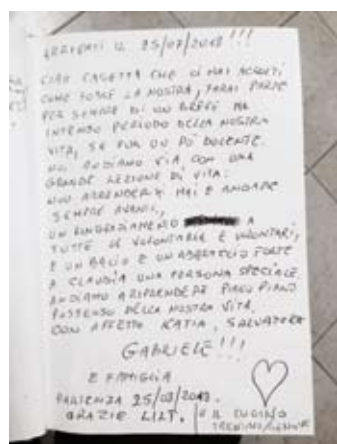 ARRIVATI IL 25/07/2019!!!
CIAO CASETTA CHE CI HAI ACCOLTI
COME FOSSE LA NOSTRA, FARAI PARTE
PER SEMPRE DI UN BREVE MA
INTENSO PERIODO DELLA NOSTRA
VITA, SE PUR UN PÒ DOLENTE.
NOI ANDIAMO VIA CON UNA
GRANDE LEZIONE DI VITA:
NON ARRENDERSI MAI E ANDARE
SEMPRE AVANTI,
UN RINGRAZIAMENTO A
TUTTE LE VOLONTARIE E VOLONTARI,
E UN BACIO E UN ABBRACCIO FORTE
A CLAUDIA UNA PERSONA SPECIALE.
ANDIAMO A RIPRENDERE PIANO PIANO
POSSESSO DELLA NOSTRA VITA.
CON AFFETTO KATIA, SALVATORE
GABRIELE!!!
E FAMIGLIA
PARTENZA 25/09/2019.
GRAZIE LILT.
E IL CUGINO